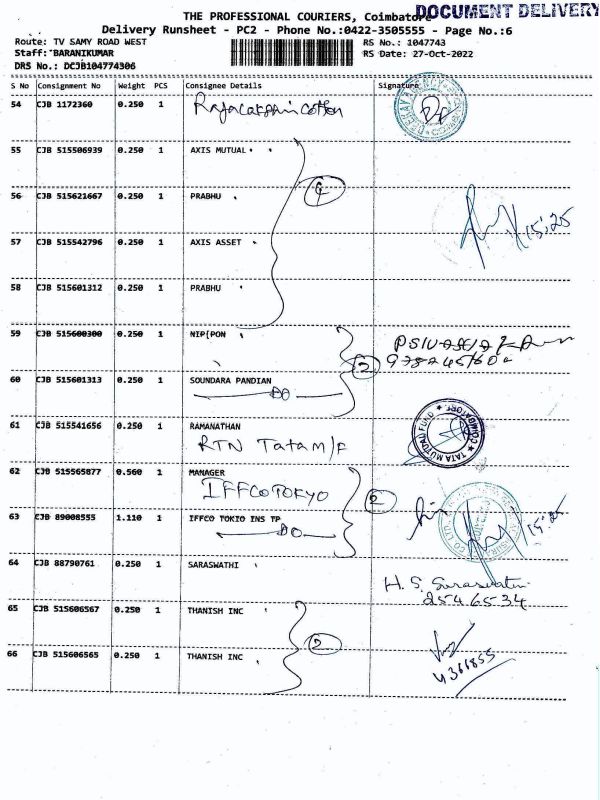 DOCUMENT DELIVERY
THE PROFESSIONAL COURIERS, Coimbatore
Delivery Runsheet - PC2 - Phone No.:0422-3505555 - Page No.:6
Route: TV SAMY ROAD WEST RS No.: 1047743
Staff: BARANIKUMAR RS Date: 27-Oct-2022
DRS No.: DCJB104774306
S No Consignment No Weight PCS Consignee Details Signature
54 CJB 1172360 0.250 1
55 CJB 515506939 0.250 1 AXIS MUTUAL
56 CJB 515621667 0.250 1 PRABHU
15:25
57 CJB 515542796 0.250 1 AXIS ASSET
58 CJB 515601312 0.250 1 PRABHU
59 CJB 515600300 0.250 1 NIP[PON
2
60 CJB 515601313 0.250 1 SOUNDARA PANDIAN
DO
61 CJB 515541656 0.250 1 RAMANATHAN
RTN Tata M/F
TATA MUTUAL FUND
62 CJB 515565877 0.560 1 MANAGER
IFFCO TOKYO
2
63 CJB 89008555 1.110 1 IFFCO TOKIO INS TP
DO
15:25
64 CJB 88790761 0.250 1 SARASWATHI
H. S. Saraswathi
2546534
65 CJB 515606567 0.250 1 THANISH INC
2
66 CJB 515606565 0.250 1 THANISH INC
4366855